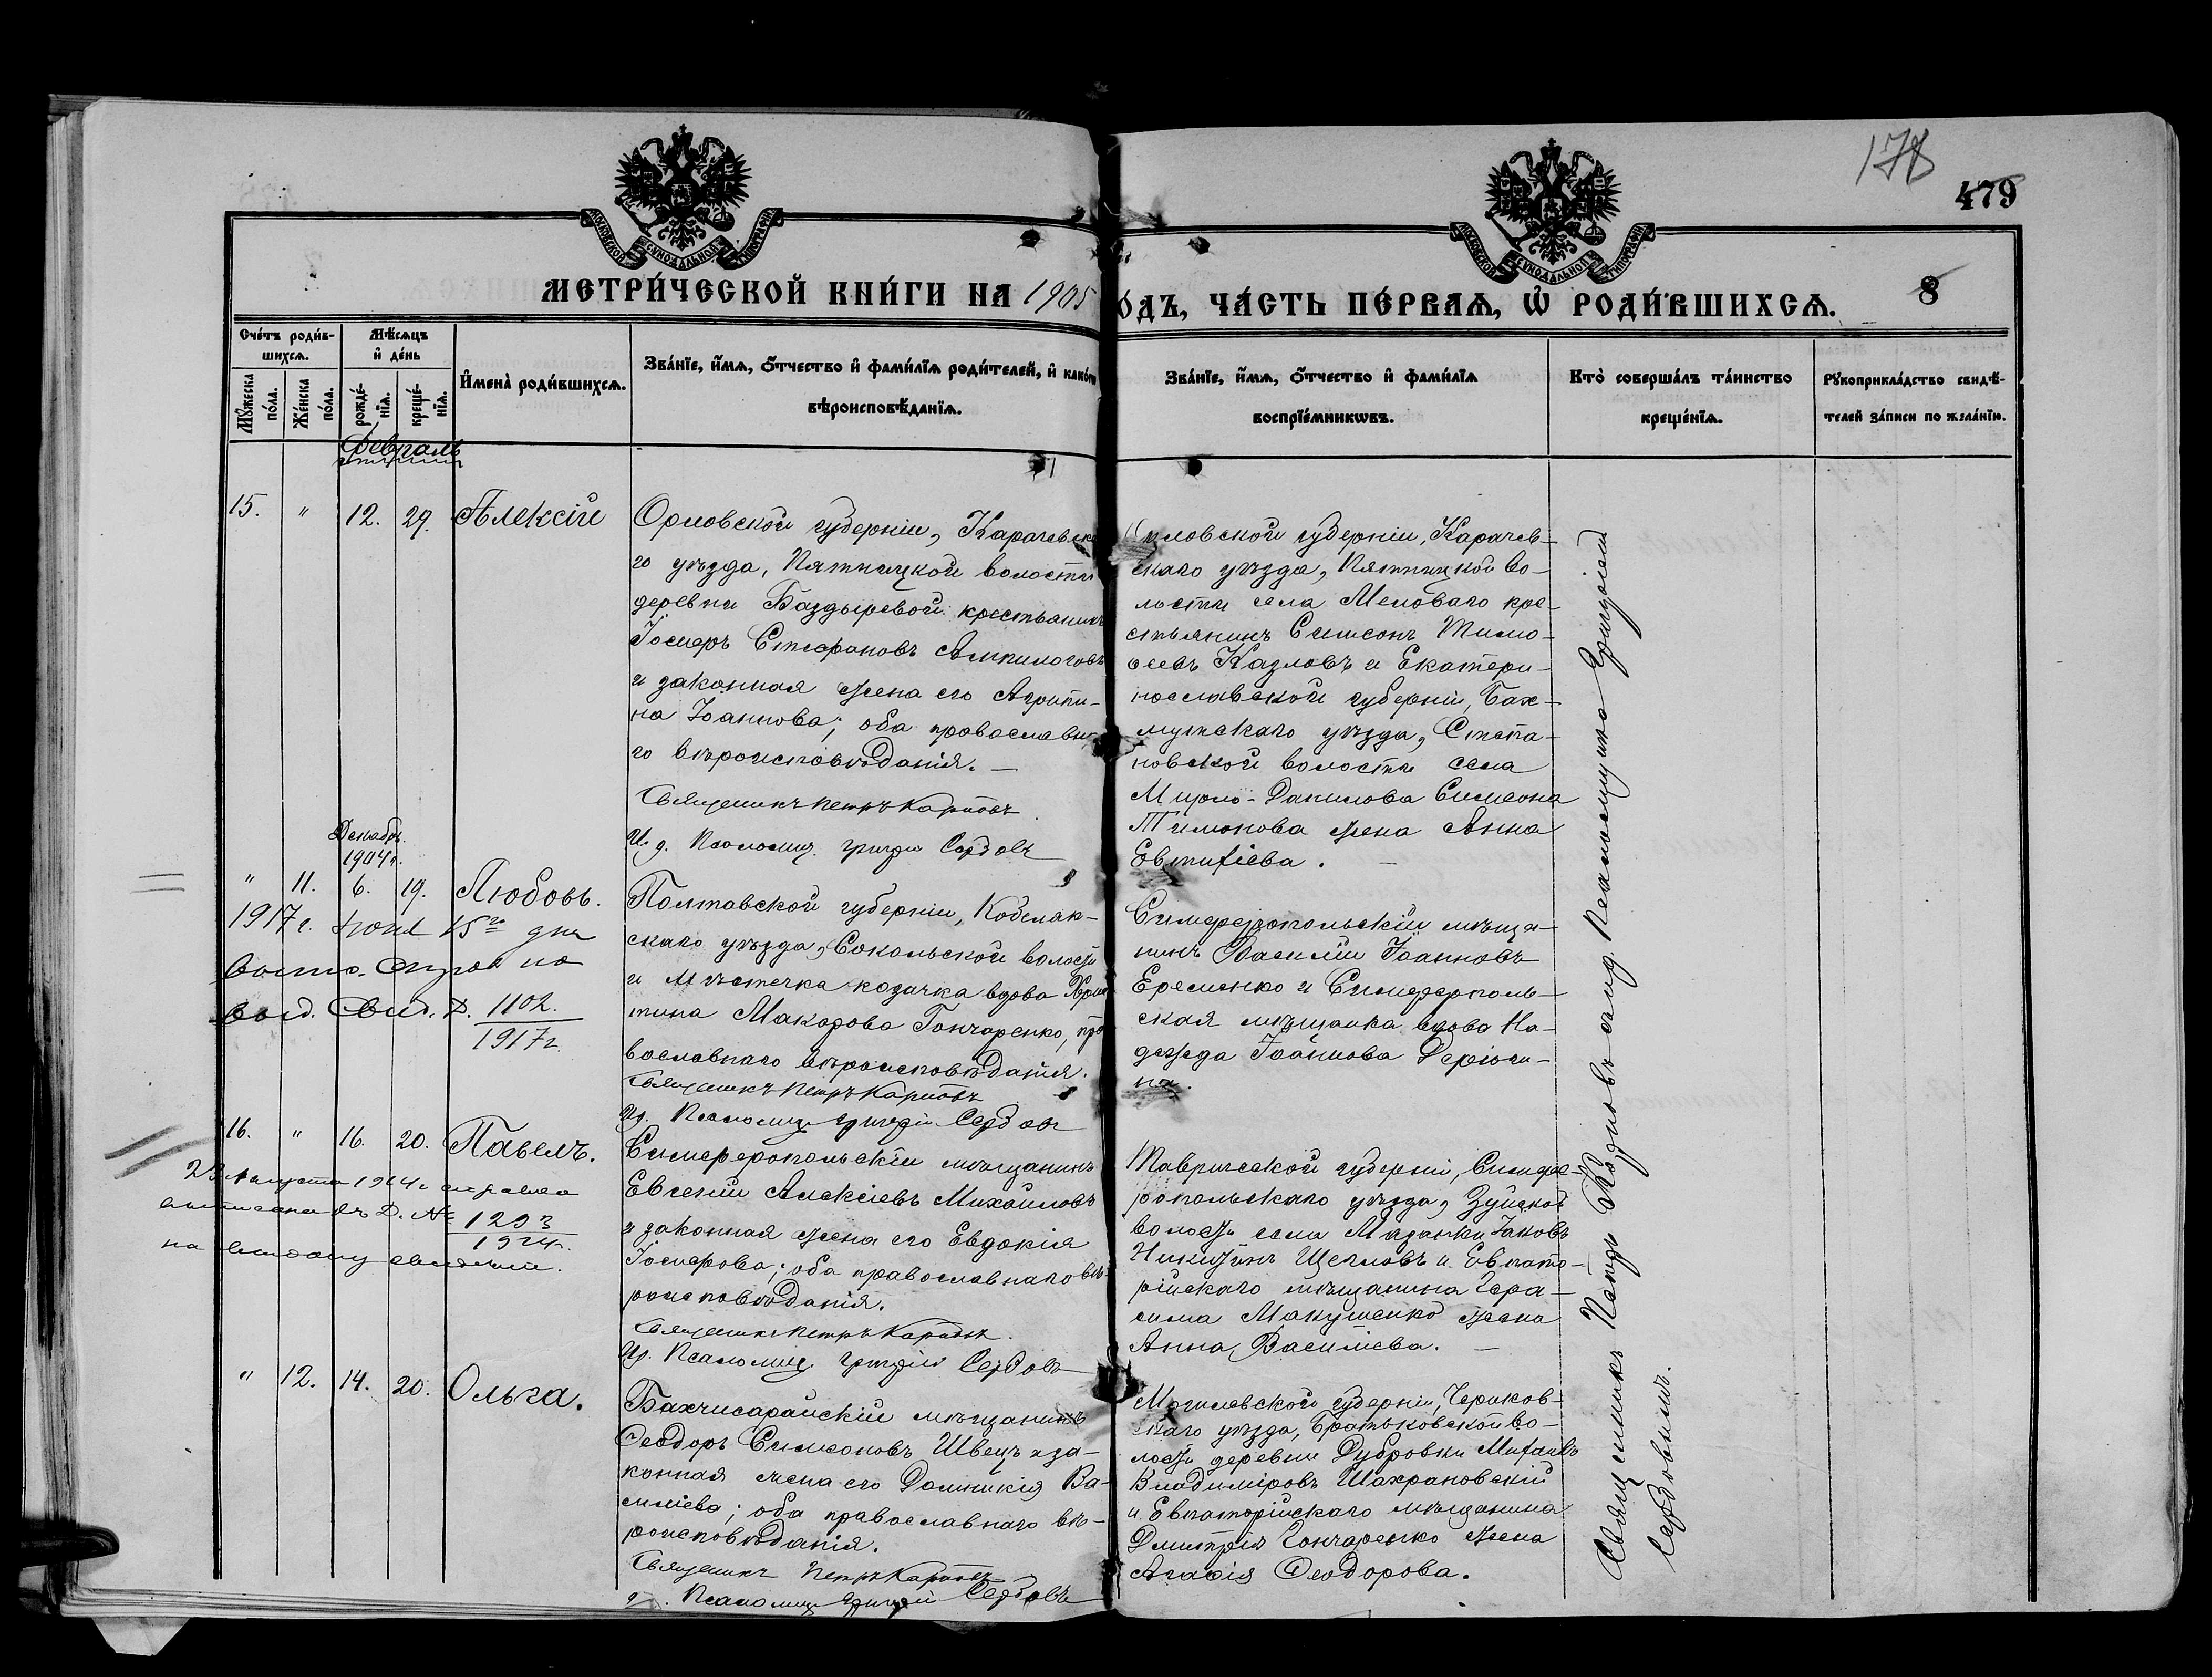 178
479
МЕТРИЧЕСКОЙ КНИГИ НА 1905
ОДЪ, ЧАСТЬ ПЕРВАЯ, Ѡ РОДИВШИХСЯ.
8
Счетъ родив-
шихся.
Мѣсяцъ
и день
Мужеска
пола.
Женска
пола.
рожде-
нія.
креще-
нія.
Имена родившихся.
Званіе, имя, отчество и фамилія родителей, и како
вѣроисповѣданія.
Званіе, имя, отчество и фамилія
воспріемниковъ.
Кто совершалъ таинство
крещенія.
Рукоприкладство свидѣ-
телей записи по желанію.
Февраль
15. " 12. 29. Алексій
Орловской губерніи, Карачевска
го уѣзда, Пятницкой волости
деревни Баздыревой крестьянинъ
Іосифъ Стефановъ Ампилоговъ
и законная жена его Агрипи-
на Іоаннова; оба православна
го вѣроисповѣданія. —
Священникъ Петръ Карповъ.
И. д. Псаломщ. Григорій Сердовъ
Орловской губерніи, Карачев-
скаго уѣзда, Пятницкой во-
лости села Меловаго кре-
стьянинъ Симеонъ Тимо-
ѳеевъ Казловъ и Екатери-
нославской губерніи, Бах-
мутскаго уѣзда, Степа-
новской волости села
Данилова Симеона
Тимонова жена Анна
Евтихіева. —
Декабрь.
1904 г.
" 11. 6. 19. Любовь.
1917 г. 15го дня
выд. свид. Д. 1102.
1917 г.
Полтавской губерніи, Кобеляк-
скаго уѣзда, Сокольской волости
и мѣстечка козачка вдова Хрис
тина Макарова Гончаренко, пра
вославнаго вѣроисповѣданія.
Священникъ Петръ Карповъ
И. д. Псаломщ. Григорій Сердовъ
Симферопольскій мѣща-
нинъ Василій Іоанновъ
Еременко и Симферополь-
ская мѣщанка вдова На-
дежда Іоаннова Дерюги-
на.
16. " 16. 20. Павелъ.
23 августа 1924 г.
Д. № 1293
1924 г.
Симферопольскій мѣщанинъ
Евгеній Алексіевъ Михайловъ
и законная жена его Евдокія
Іосифова; оба православнаго вѣ-
роисповѣданія.
Священникъ Петръ Карповъ.
И. д. Псаломщ. Григорій Сердовъ
Таврической губерніи, Симфе-
ропольскаго уѣзда, Зуйской
волости села Мазанки Іаковъ
Никитинъ Щегловъ и Евпато-
рійскаго мѣщанина Гера-
сима Макушенко жена
Анна Василіева. —
" 12. 14. 20. Ольга.
Бахчисарайскій мѣщанинъ
Ѳеодоръ Симеоновъ Швецъ и за-
конная жена его Домникія Ва-
силіева; оба православнаго вѣ-
роисповѣданія.
Священникъ Петръ Карповъ
д. Псаломщ. Григорій Сердовъ
Могилевской губерніи, Чериков-
скаго уѣзда, Братьковской во-
лости деревни Дубровки Михаилъ
Владиміровъ Шахрановскій
и Евпаторійскаго мѣщанина
Дмитрія Гончаренко жена
Агаѳія Ѳеодорова.
Священникъ Петръ Карповъ съ и. д. Псаломщика Григоріемъ
Сердовымъ.